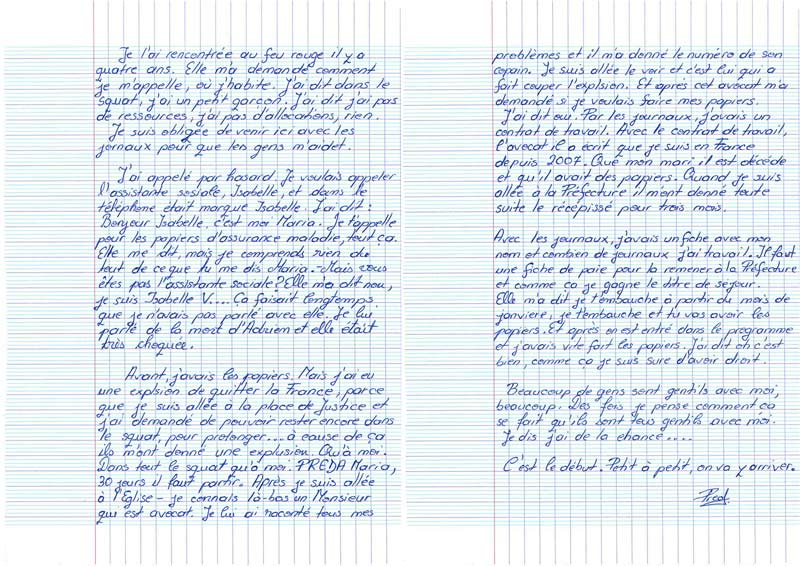 Je l'ai rencontrée au feu rouge il y a
quatre ans. Elle m'a demandé comment
je m'appelle, où j'habite. J'ai dit dans le
squat, j'ai un petit garçon. J'ai dit j'ai pas
de ressources, j'ai pas d'allocations, rien.
Je suis obligée de venir ici avec les
jornaux pour que les gens m'aidet.
J'ai appelé par hasard. Je voulais appeler
l'assistante sosiale, Isabelle, et dans le
téléphone était marqué Isabelle. J'ai dit :
Bonjour Isabelle, c'est moi Maria. Je t'appelle
pour les papiers d'assurance maladie, tout ça.
Elle me dit, mais je comprends rien du
tout de ce que tu me dis Maria. - Mais vous
êtes pas l'assistante sociale ? Elle m'a dit nou,
je suis Isabelle V.... Ça faisait longtemps
que je n'avais pas parlé avec elle. Je lui
parlé de la mort d'Adrien et elle était
très choquée.
Avant, j'avais les papiers. Mais j'ai eu
une explsion de quitter la France, parce
que je suis allée à la place de Justice et
j'ai demandé de pouvoir rester encore dans
le squat, pour prolonger.... à cause de ça
ils m'ont donné une explusion. Qu'à moi.
Dans tout le squat qu'à moi. PREDA Maria,
30 jours il faut partir. Après je suis allée
à l'Eglise - je connais là-bas un Monsieur
qui est avocat. Je lui ai raconté tous mes
problèmes et il m'a donné le numéro de son
copain. Je suis allée le voir et c'est lui qui a
fait couper l'explsion. Et après cet avocat m'a
demandé si je voulais faire mes papiers.
J'ai dit oui. Par les journaux, j'avais un
contrat de travail. Avec le contrat de travail,
l'avocat il a écrit que je suis en France
depuis 2007. Que mon mari il est décédé
et qu'il avait des papiers. Quand je suis
allée à la Préfecture il m'ont donné toute
suite le récépissé pour trois mois.
Avec les journaux, j'avais un fiche avec mon
nom et combien de journaux j'ai travail. Il faut
une fiche de paie pour la remener à la Préfecture
et comme ça je gagne le titre de sejour.
Elle m'a dit je t'embauche à partir du mois de
janviere, je t'embauche et tu vas avoir les
papiers. Et après on est entré dans le programme
et j'avais vite fait les papiers. J'ai dit oh c'est
bien, comme ça je suis sure d'avoir droit.
Beaucoup de gens sont gentils avec moi,
beaucoup. Des fois je pense comment ça
se fait qu'ils sont tous gentils avec moi.
Je dis j'ai de la chance....
C'est le début. Petit à petit, on va y arriver.